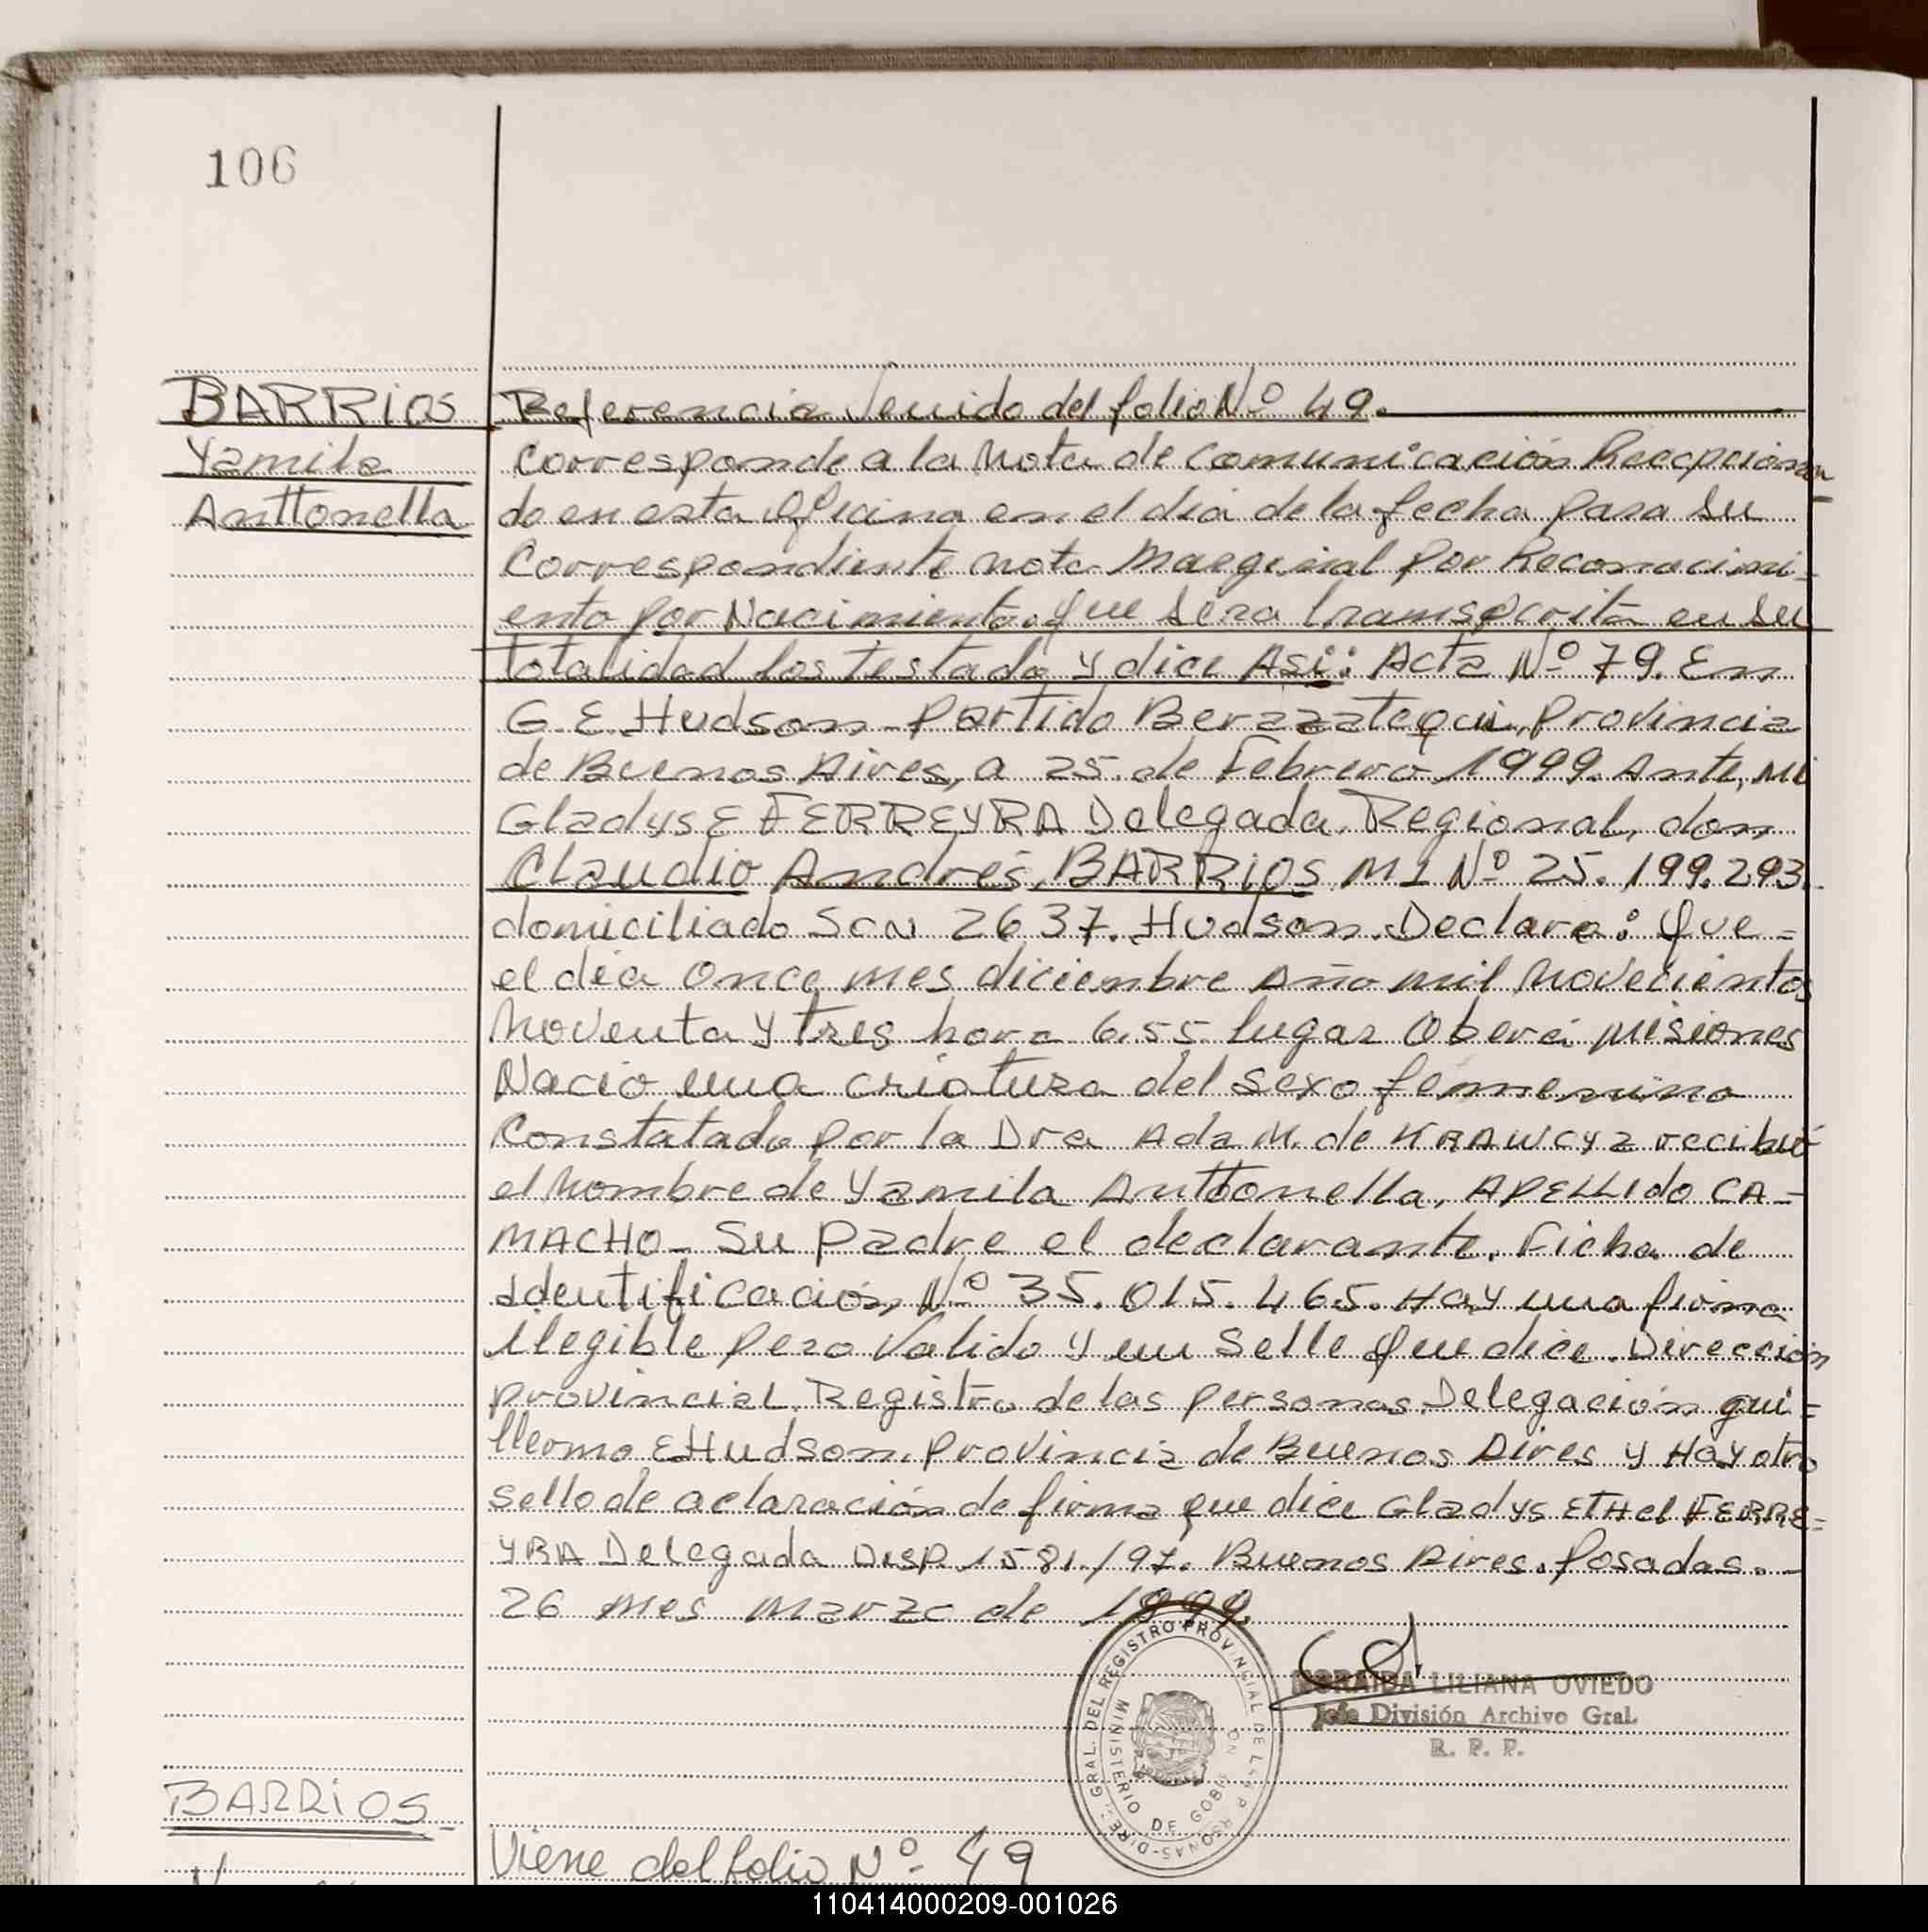 106
BARRiOS
Yamila
Anttonella
Referencia Venido del folio Nº 49.
Corresponde a la Nota de Comunicación Recepcionan
do en esta Oficina en el día de la fecha para su
Correspondiente nota Marginal por Reconocimi=
ento por Nacimiento. que sera transcrita en su
totalidad los testado y dice Asi: Acta Nº 79. En
G.E. Hudson - Partido Berazategui, Provincia
de Buenos Aires, a 25 de Febrero 1999. Ante, Mi
Gladys E FERREYRA Delegada Regional, don
Claudio Andrés BARRiOS MI Nº 25.199.293.
domiciliado SCN 2637. Hudson. Declara: Que =
el día Once mes diciembre Año mil Novecientos
Noventa y Tres hora 6.55 lugar Oberá Misiones
Nacio una criatura del sexo femenino
Constatado por la Dra Ada M. de KRAWCYZ recibió
el Nombre de Yamila Anttonella, APELLIDO CA-
MACHO- Su Padre el declarante. Ficha de
identificación Nº 35.015.465. Hay una firma
ilegible pero Valido y un Selle que dice. Dirección
Provincial Registro de las personas Delegación gui=
llermo E Hudson. Provincia de Buenos Aires y Hay otro
sello de aclaración de firma que dice Gladys ETHel FERRE=
YRA Delegada Disp. 1581/97. Buenos Aires. Posadas. -
26 mes marzo de 1999.
DIREC. GRAL. DEL REGISTRO PROVINCIAL DE LAS PERSONAS
MINISTERIO DE GOBIERNO
NORAIDA LILIANA OVIEDO
Jefe División Archivo Gral.
R. P. P.
BARRiOS
Viene del folio Nº 49
110414000209-001026